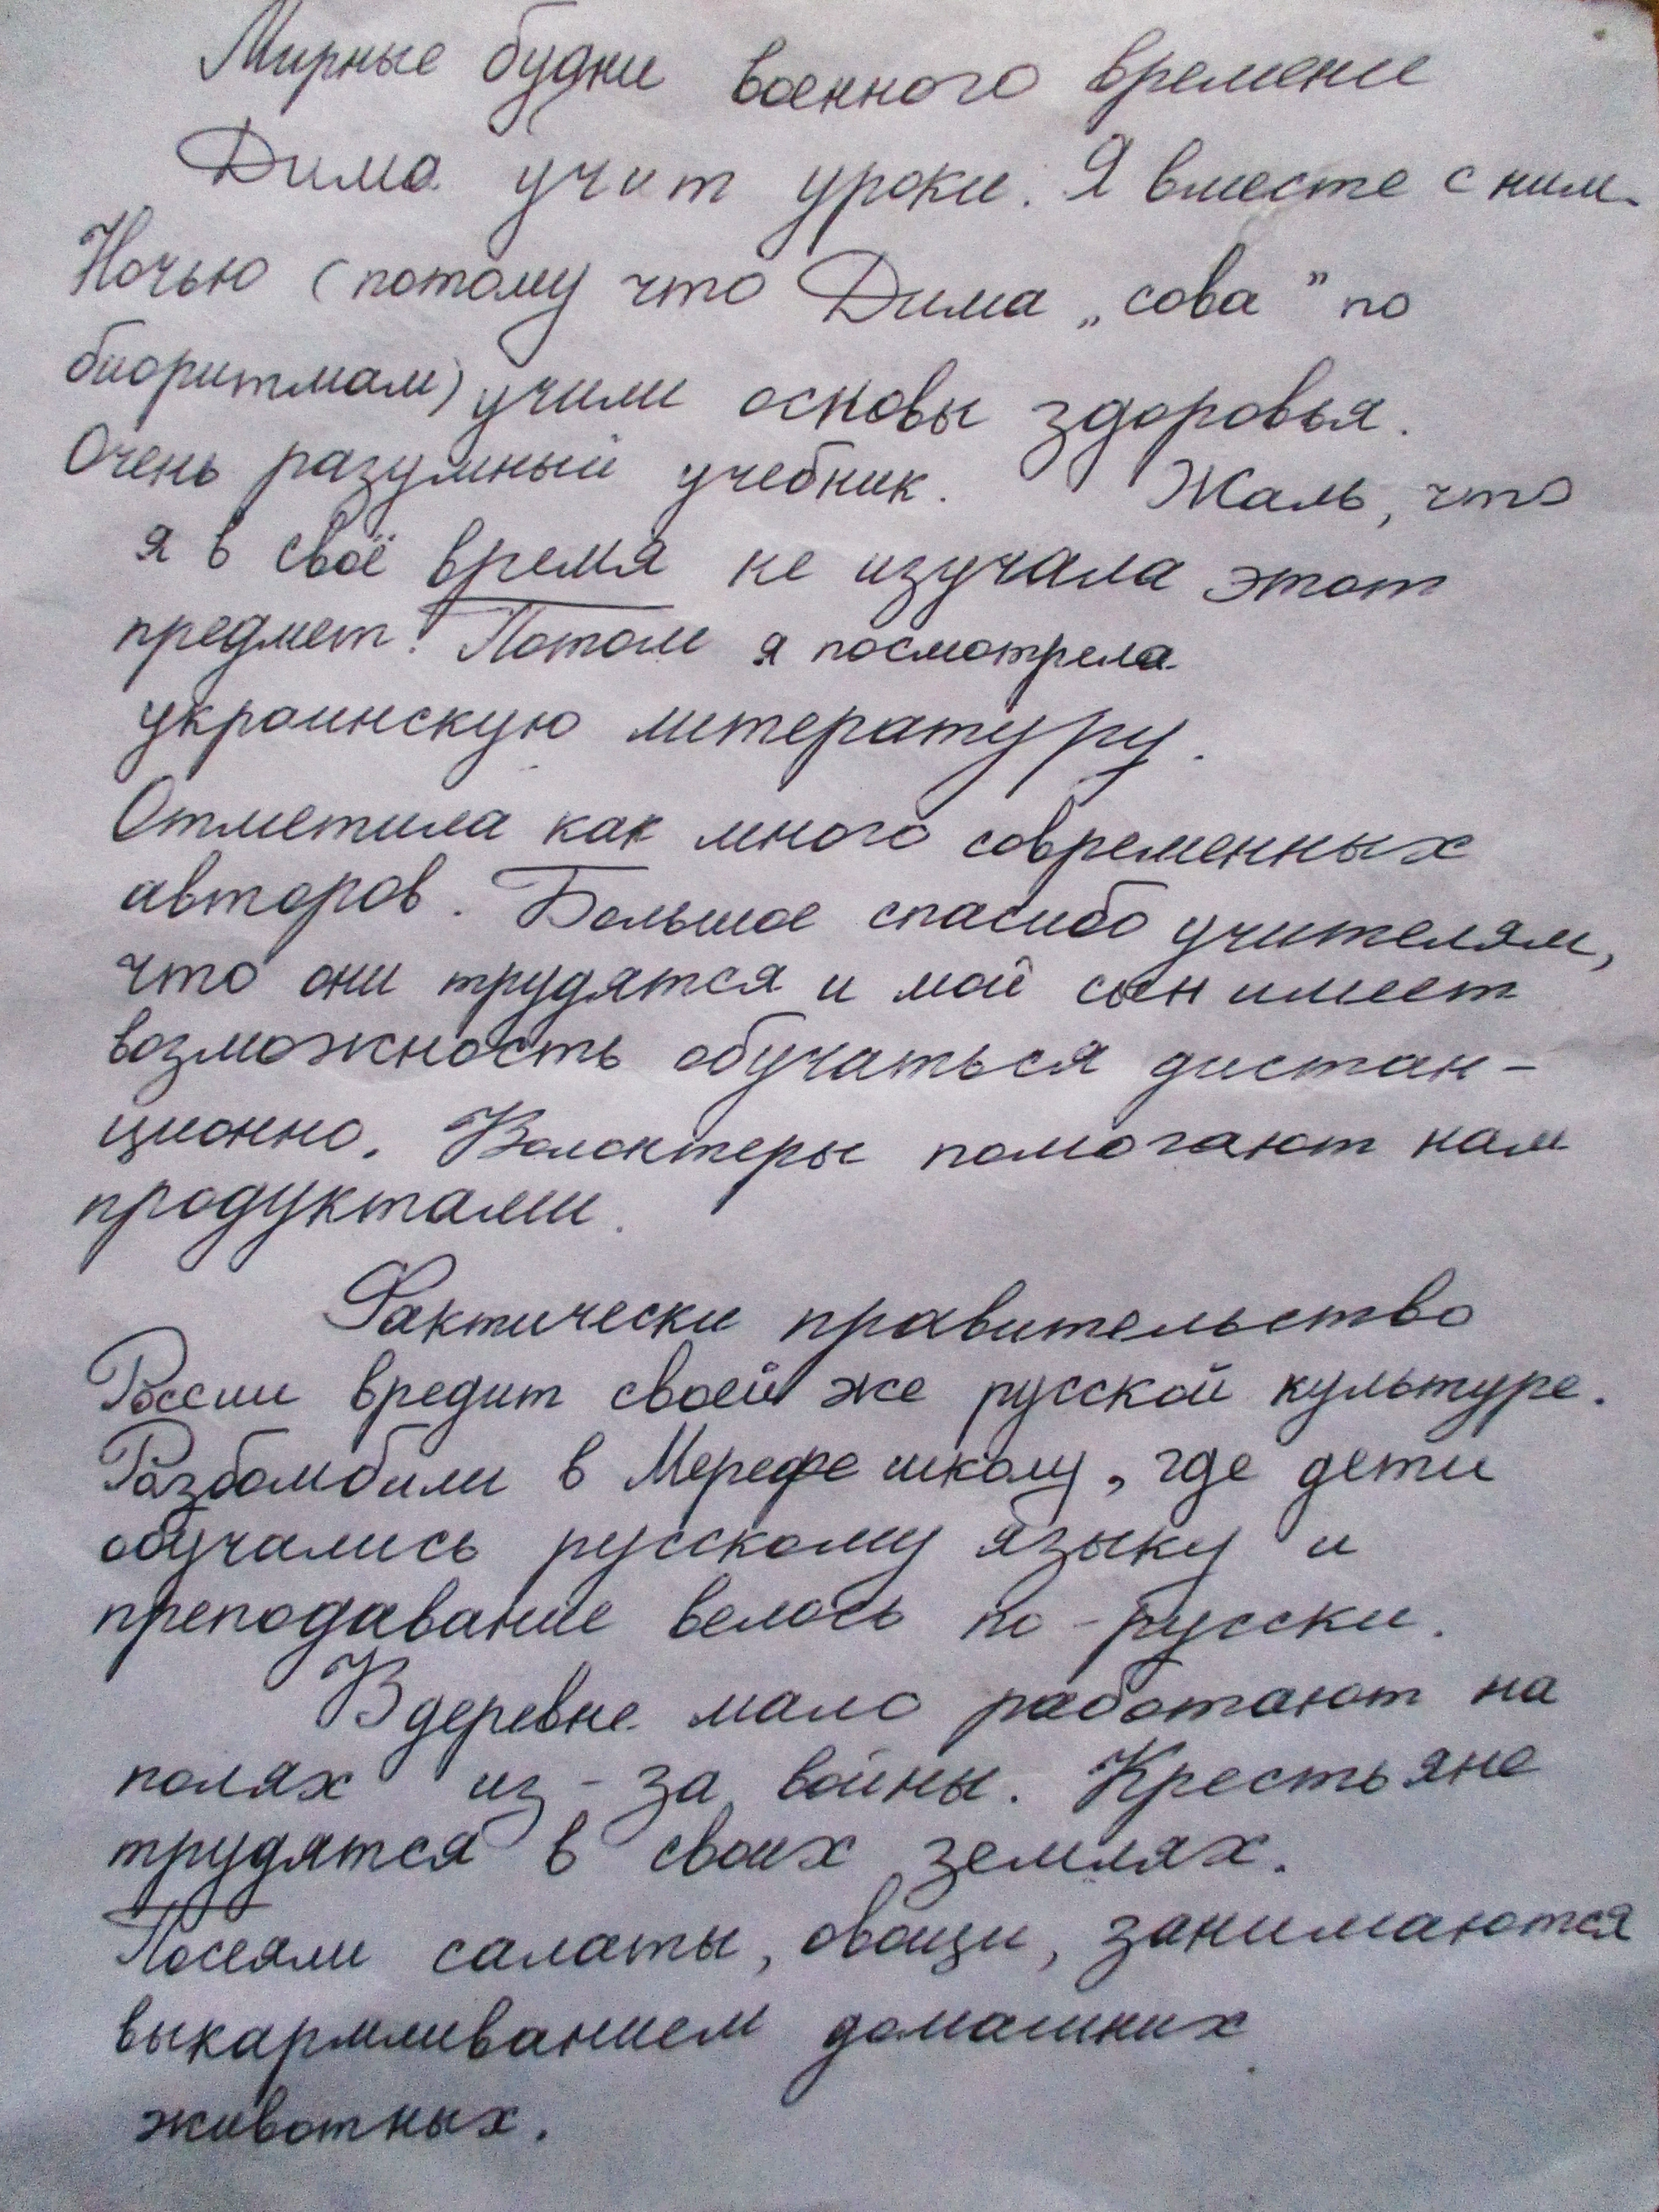 Мирные будни военного времени
Дима учит уроки. Я вместе с ним.
Ночью (потому что Дима „сова" по
биоритмам) учили основы здоровья.
Очень разумный учебник. Жаль, что
я в своё время не изучала этот
предмет! Потом я посмотрела
украинскую литературу.
Отметила как много современных
авторов. Большое спасибо учителям,
что они трудятся и мой сын имеет
возможность обучаться дистан-
ционно. Волонтеры помогают нам
продуктами.
Фактически правительство
России вредит своей же русской культуре.
Разбомбили в Мерефе школу, где дети
обучались русскому языку и
преподавание велось по-русски.
В деревне мало работают на
полях из-за войны. Крестьяне
трудятся в своих землях.
Посеяли салаты, овощи, занимаются
выкармливанием домашних
животных.